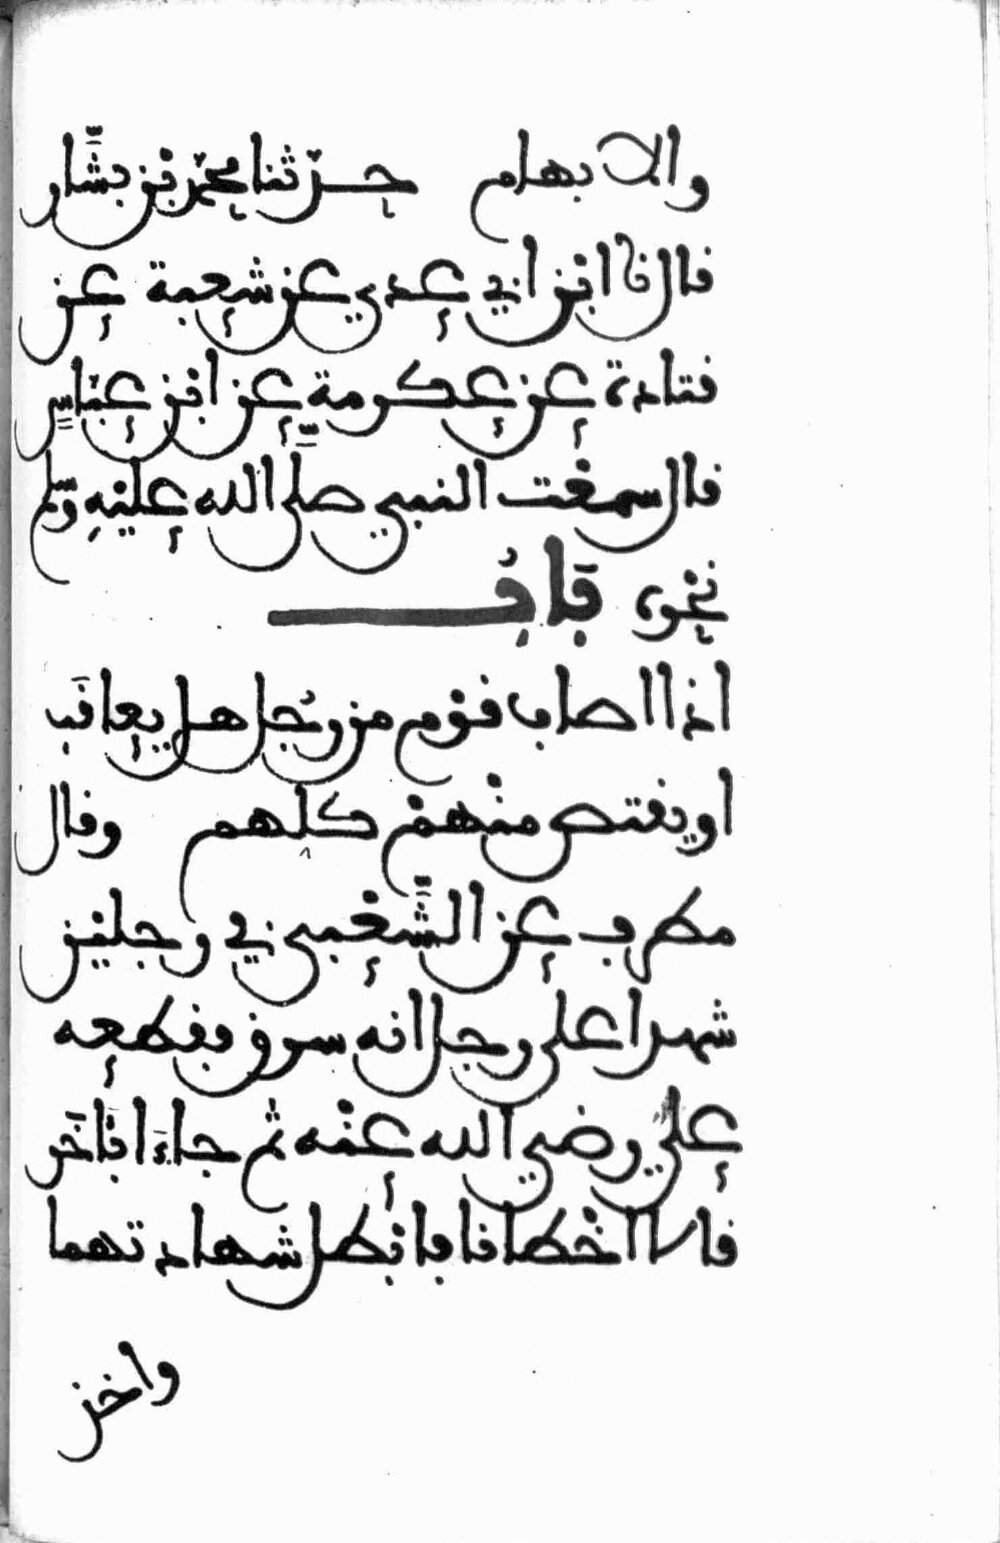 والابهام حدثنا محمد بن بشّار
قال نا ابن ابي عدي عن شعبة عن
قتادة عن عكرمة عن ابن عباس
قال سمعت النبي صلّى الله عليه وسلم
نحوه بابُ
اذا اصاب قوم من رجل هل يعاقب
او يقتص منهم كلهم وقال
مطرف عن الشّعبي في رجلين
شهدا على رجل انه سرق فقطعه
علي رضي الله عنه ثم جاءا بآخر
قالا اخطانا فابطل شهادتهما
واخذ